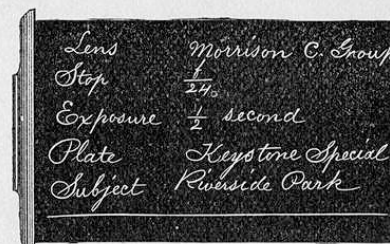 Lens Morrison C. Group
Stop f/24.
Exposure 1/2 second
Plate Keystone Special
Subject Riverside Park